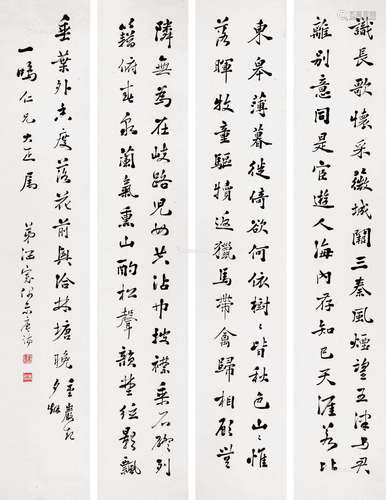 識長歌懷采薇城闕三秦風煙望五津與君
離別意同是宦遊人海內存知己天涯若比
東皋薄暮徙倚欲何依樹〻皆秋色山〻惟
落暉牧童驅犢返獵馬帶禽歸相顧
隣無為在歧路兒女共沾巾披襟乘石磴列
籍俯春泉蘭氣熏山酌松聲韻野絃影飄
垂葉外香度落花前興洽林塘晚重巖起
夕煙
一鳴仁兄大正屬
弟江